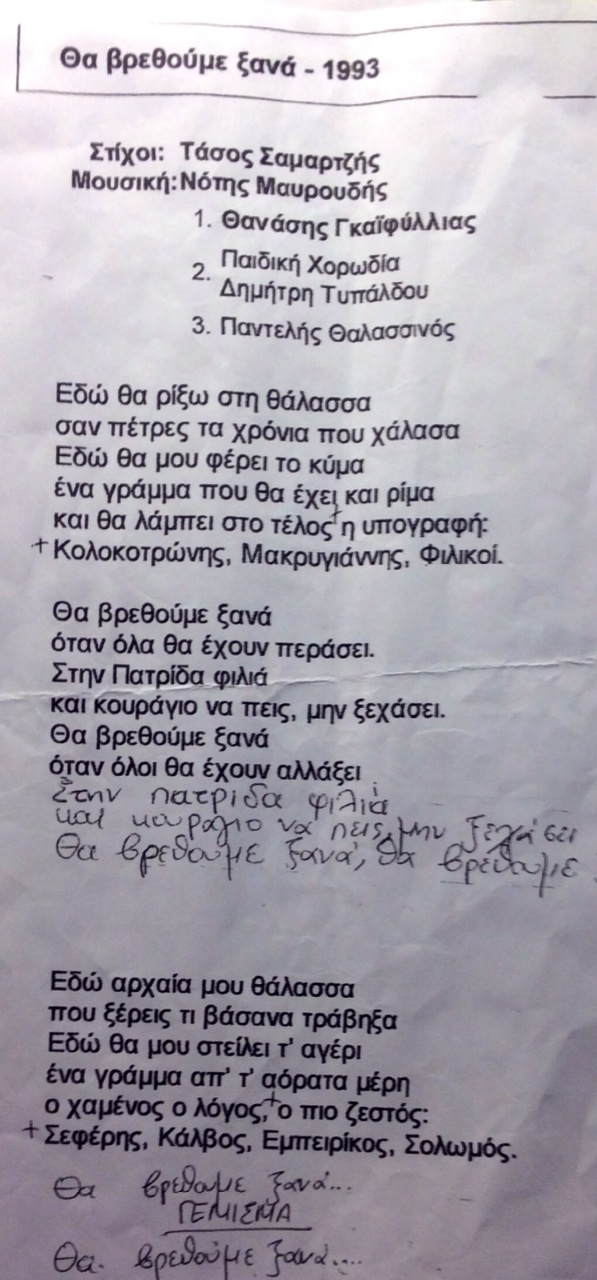 Θα βρεθούμε ξανά - 1993
Στίχοι: Τάσος Σαμαρτζής
Μουσική: Νότης Μαυρουδής
1. Θανάσης Γκαϊφύλλιας
2. Παιδική Χορωδία
Δημήτρη Τυπάλδου
3. Παντελής Θαλασσινός
Εδώ θα ρίξω στη θάλασσα
σαν πέτρες τα χρόνια που χάλασα
Εδώ θα μου φέρει το κύμα
ένα γράμμα που θα έχει και ρίμα
και θα λάμπει στο τέλος + η υπογραφή:
+ Κολοκοτρώνης, Μακρυγιάννης, Φιλικοί.
Θα βρεθούμε ξανά
όταν όλα θα έχουν περάσει.
Στην Πατρίδα φιλιά
και κουράγιο να πεις, μην ξεχάσει.
Θα βρεθούμε ξανά
όταν όλοι θα έχουν αλλάξει
Στην πατρίδα φιλιά
και κουράγιο να πεις, μην ξεχάσει
Θα βρεθούμε ξανά, θα βρεθούμε
Εδώ αρχαία μου θάλασσα
που ξέρεις τι βάσανα τράβηξα
Εδώ θα μου στείλει τ' αγέρι
ένα γράμμα απ' τ' αόρατα μέρη
ο χαμένος ο λόγος, + ο πιο ζεστός:
+ Σεφέρης, Κάλβος, Εμπειρίκος, Σολωμός.
Θα βρεθούμε ξανά...
ΓΕΜΙΣΜΑ
Θα βρεθούμε ξανά....